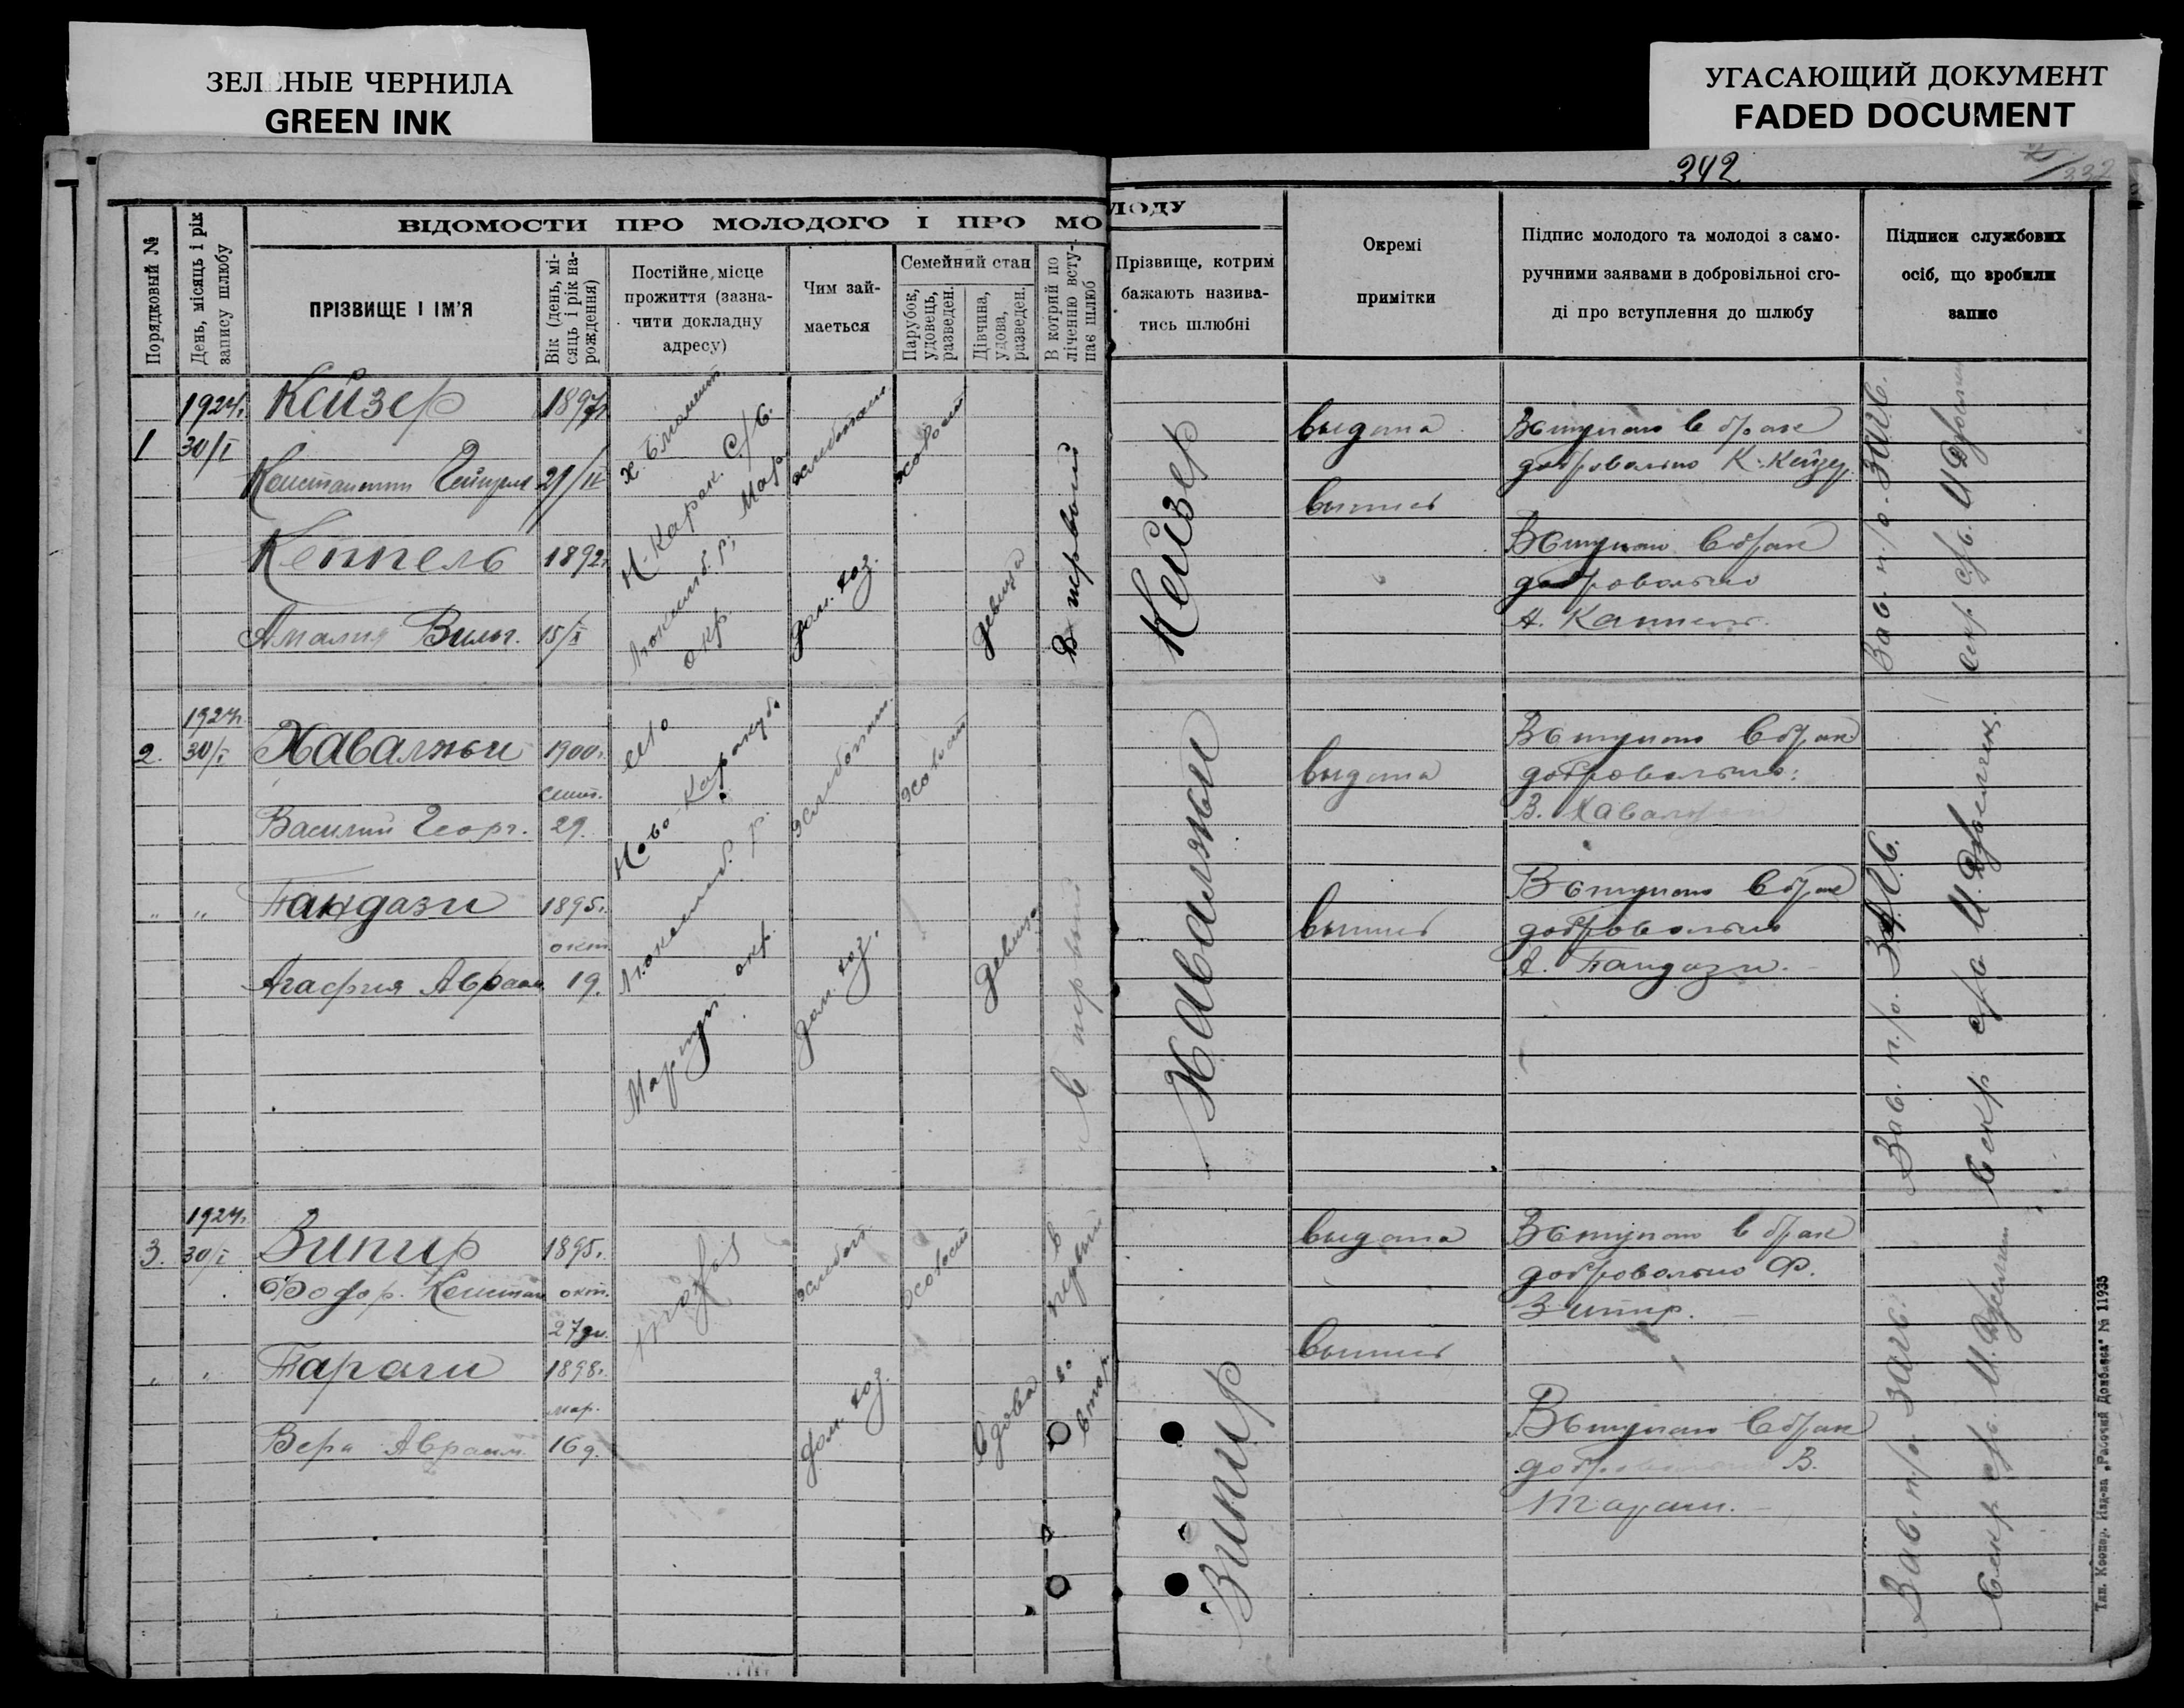 ЗЕЛЕНЫЕ ЧЕРНИЛА
GREEN INK
УГАСАЮЩИЙ ДОКУМЕНТ
FADED DOCUMENT
342
332
ВІДОМОСТИ ПРО МОЛОДОГО І ПРО МОЛОДУ
Порядковый №
День, місяць і рік запису шлюбу
ПРІЗВИЩЕ І ІМ'Я
Вік (день, місяць і рік народження)
Постійне місце прожиття (зазначити докладну адресу)
Чим займається
Семейний стан
Парубок, удовець, разведен.
Дівчина, удова, разведен.
В котрий по ліченню вступає шлюб
Прізвище, котрим бажають называтись шлюбні
Окремі примітки
Підпис молодого та молодоі з саморучними заявами в добровільноі сгоді про вступлення до шлюбу
Підписи службових осіб, що зробили запис
1
1924.
30/I
Кейзер
1897
21/II
Х.
Н-Карак. С/С.
окр
Мар
хлебопаш.
холост
Кеппель
1892.
Амалия Вильг.
15/X
дом. хоз.
девица
В первый
Кейзер
выдана
выпись
Вступаю в брак
добровольно К. Кейзер
Вступаю в брак
добровольно
А. Каппель.
Зав. п/о. ЗАГС.
Секр. с/с.
2.
1924.
30/I
Хавалжы
1900.
Василий Георг.
29.
село
Ново-Каракуба
р.
Мариуп. окр.
хлебопаш.
холост
" "
Тандази
1895.
окт
Агафия Авраам.
19.
дом. хоз.
девица
в первый
Хавалжы
выдана
выпись
Вступаю в брак
добровольно:
В. Хавалжы
Вступаю в брак
добровольно
А. Тандази.
Зав. п/о. ЗАГС.
Секр. с/с
3.
1924.
30/I
Зипир
1895.
Федор. Констан
окт.
27 дн.
тоже
хлебоп.
холост
в первый
" "
Тараги
1898.
мар.
Вера Авраам.
16 д.
дом. хоз.
вдова
во втор.
Зипир
выдана
выпись
Вступаю в брак
добровольно Ф.
Зипир.
Вступаю в брак
добровольно В.
Тараги.
Зав. п/о. ЗАГС.
Секр. с/с.
Тип. Коопер. Изд-ва „Рабочий Донбасса" № 11935